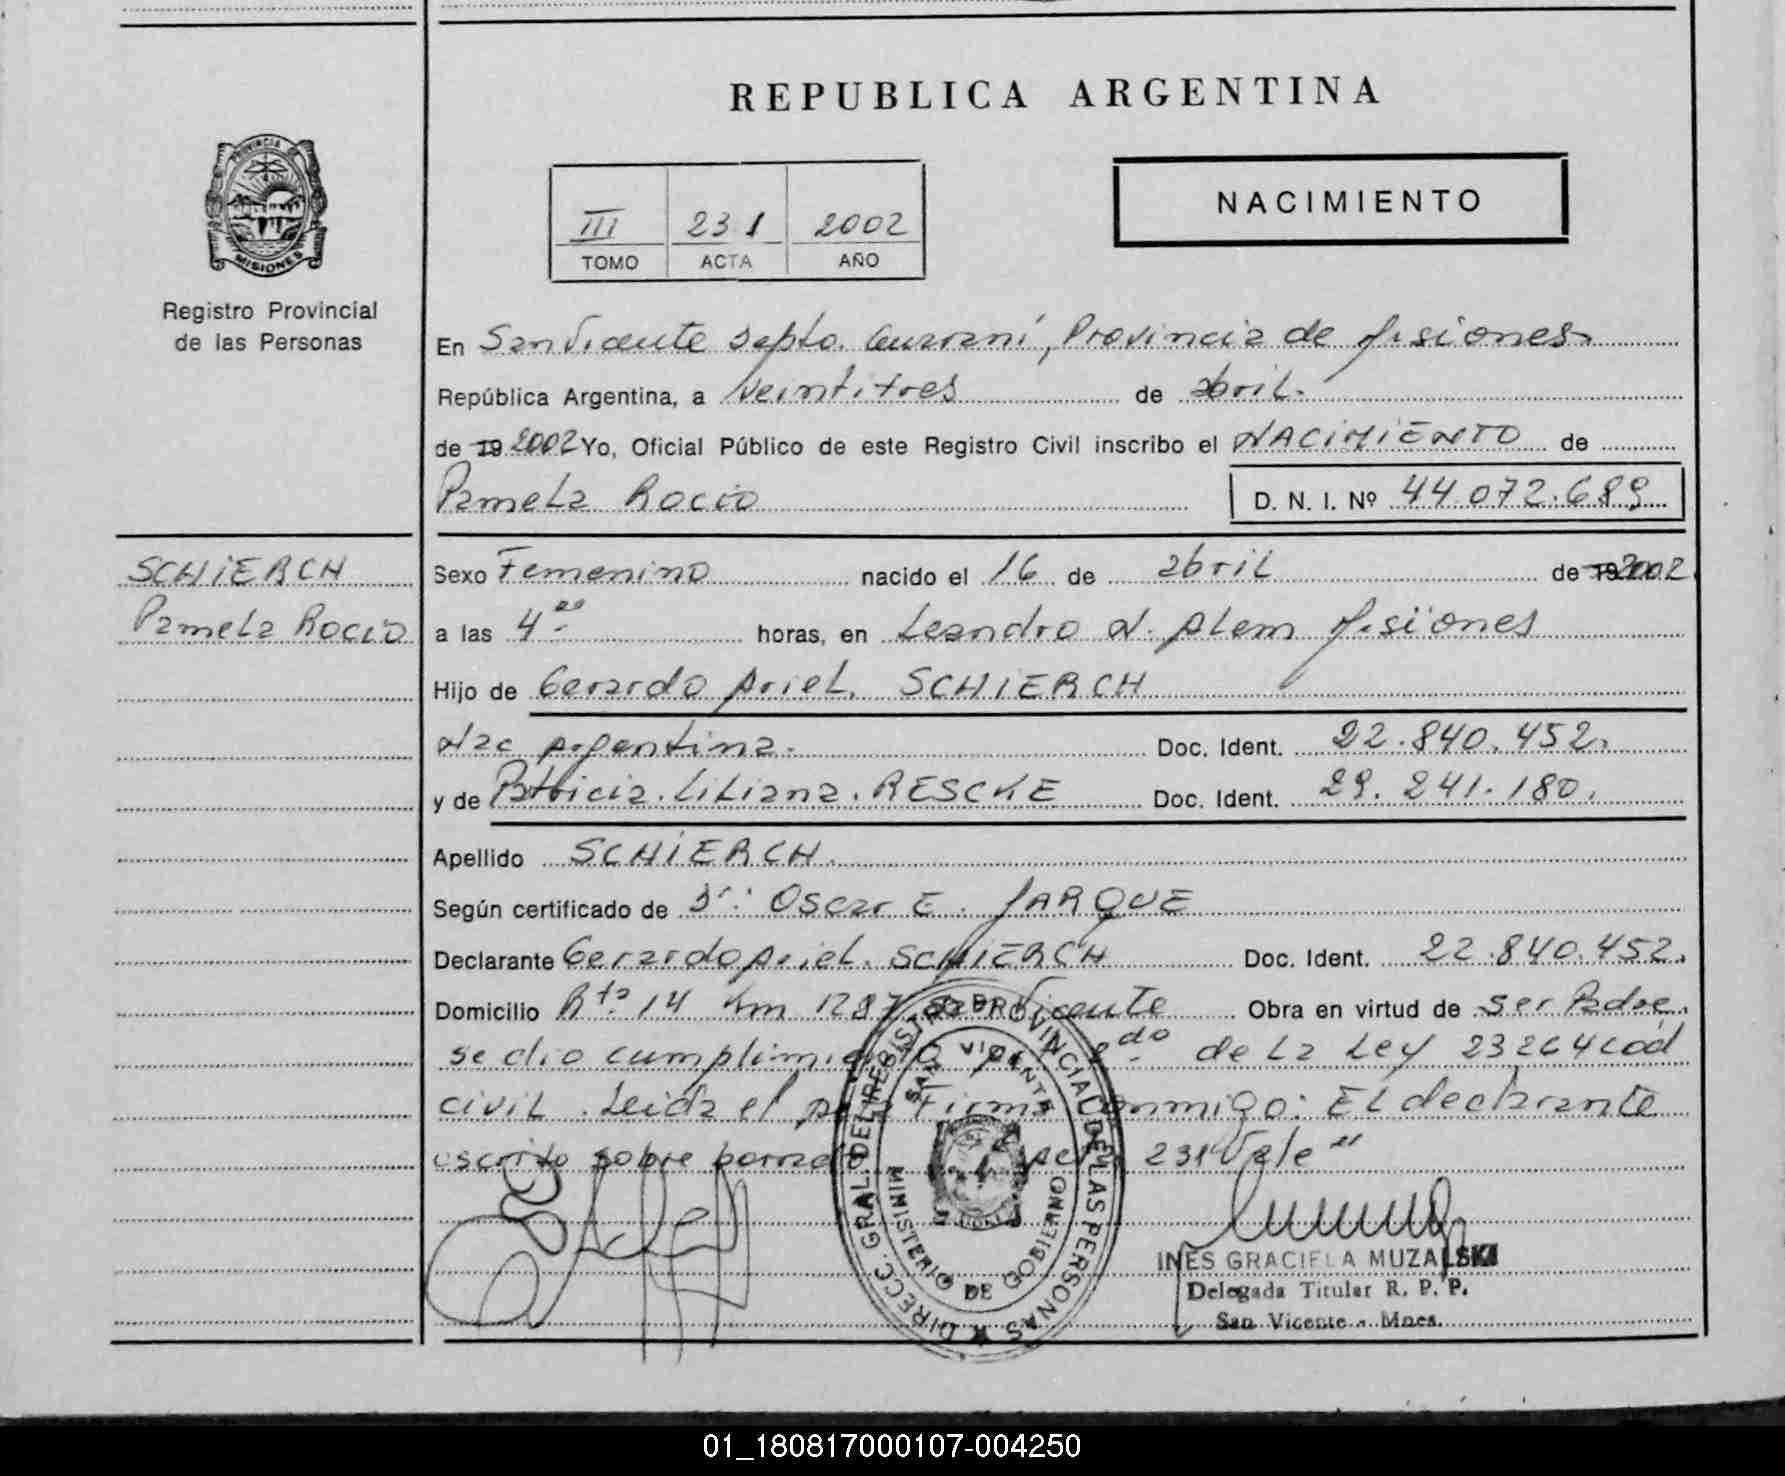 REPUBLICA ARGENTINA
PROVINCIA DE
MISIONES
Registro Provincial
de las Personas
NACIMIENTO
III 231 2002
TOMO ACTA AÑO
En San Vicente Depto. Guaraní, Provincia de Misiones
República Argentina, a veintitres de abril.
de 19 2002 Yo, Oficial Público de este Registro Civil inscribo el NACIMIENTO de
Pamela Rocio D. N. I. Nº 44.072.689
SCHIERCH
Pamela Rocio
Sexo Femenino nacido el 16 de abril de 19 2002
a las 4 horas, en Leandro N. Alem Misiones
Hijo de Gerardo Ariel. SCHIERCH
Nac Argentina. Doc. Ident. 22.840.452.
y de Patricia Liliana. RESCKE Doc. Ident. 29.241.180.
Apellido SCHIERCH.
Según certificado de Dr: Oscar E. JARQUE
Declarante Gerardo Ariel. SCHIERCH Doc. Ident. 22.840.452.
Domicilio Rta. 14 Km 1287 San Vicente Obra en virtud de ser Padre.
se dio cumplimiento de la Ley 23264 cod
civil. Leida el Firma conmigo: El declarante
escrito sobre 231 Vale"
DIRECC. GRAL. DEL REGISTRO PROVINCIAL DE LAS PERSONAS
SAN VICENTE
MINISTERIO DE GOBIERNO
INES GRACIELA MUZALSKI
Delegada Titular R. P. P.
San Vicente - Mnes.
01_180817000107-004250